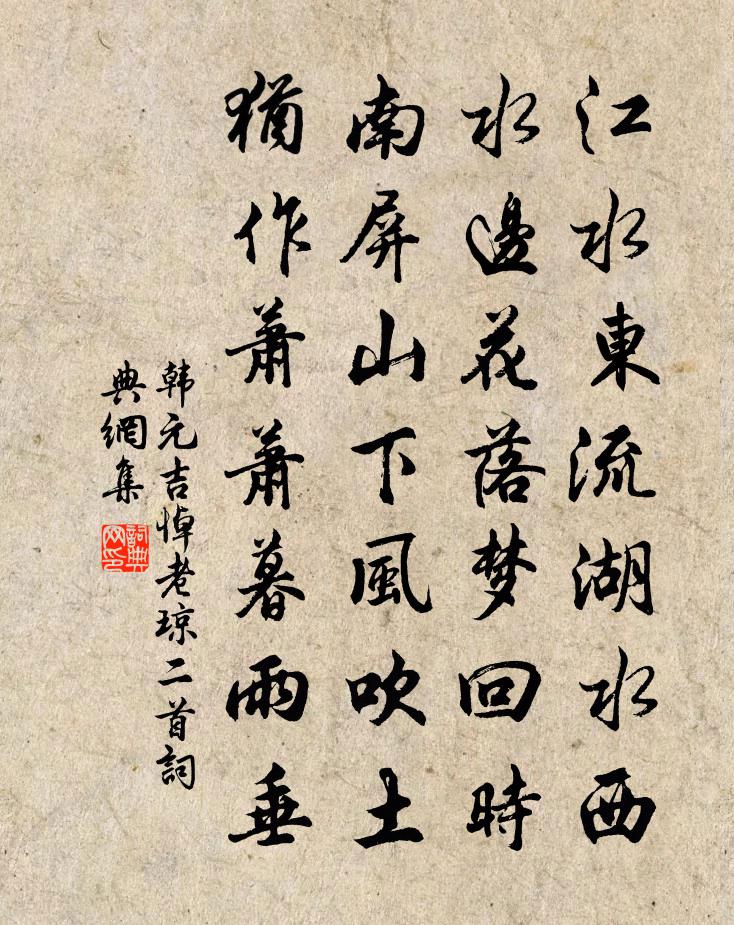 江水東流湖水西
水邊花落梦回時
南屏山下風吹土
猶作蕭蕭暮雨垂
韩元吉悼老琼二首詞
典網集
詞典
网印